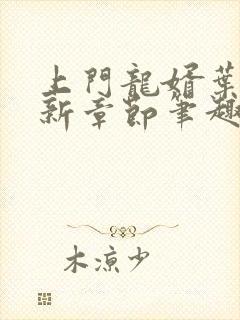 上門龍婿葉
新章節筆趣
木涼少